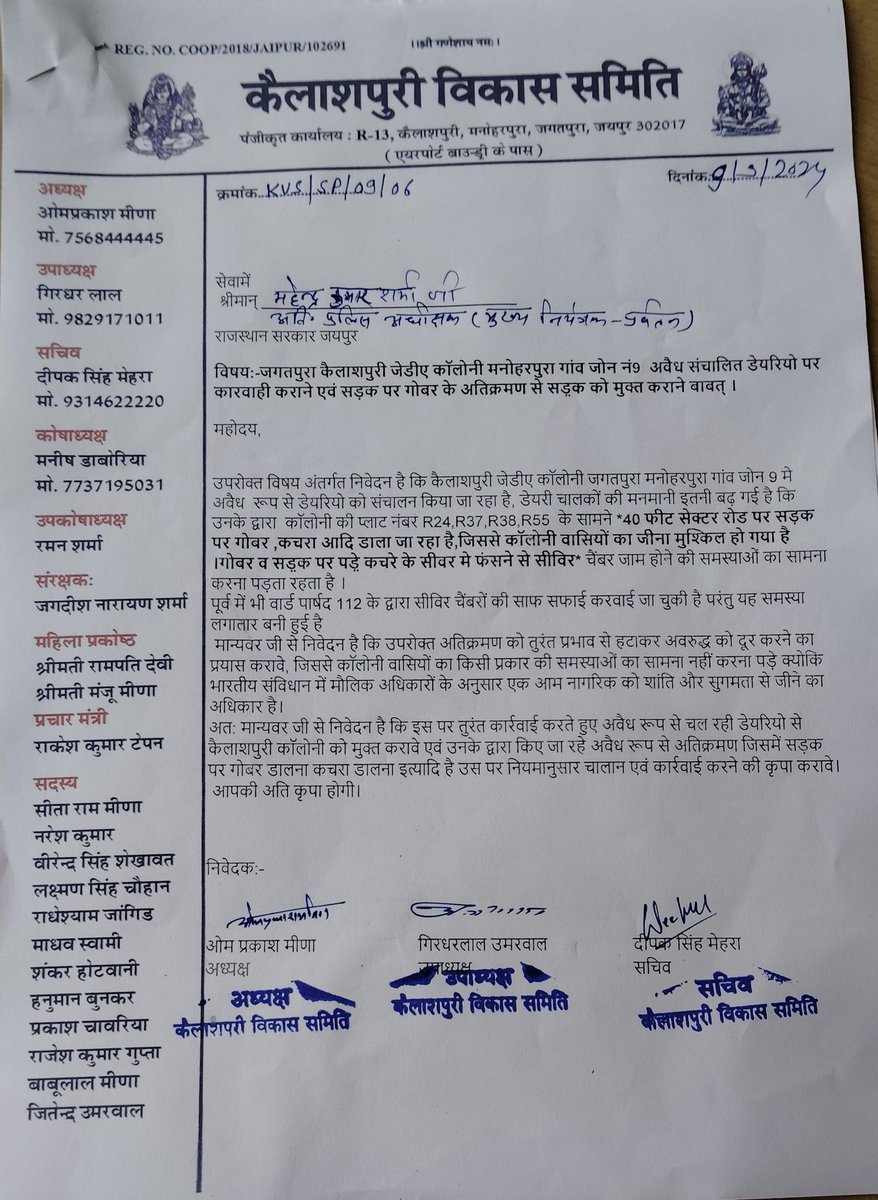 REG. NO. COOP/2018/JAIPUR/102691
।।श्री गणेशाय नमः।
कैलाशपुरी विकास समिति
पंजीकृत कार्यालय : R-13, कैलाशपुरी, मनोहरपुरा, जगतपुरा, जयपुर 302017
( एयरपोर्ट बाउन्ड्री के पास )
क्रमांक..K.V.S/S.P/09/06
दिनांक.9/3/2024
अध्यक्ष
ओमप्रकाश मीणा
मो. 7568444445
उपाध्यक्ष
गिरधर लाल
मो. 9829171011
सचिव
दीपक सिंह मेहरा
मो. 9314622220
कोषाध्यक्ष
मनीष डाबोरिया
मो. 7737195031
उपकोषाध्यक्ष
रमन शर्मा
संरक्षक:
जगदीश नारायण शर्मा
महिला प्रकोष्ठ
श्रीमती रामपति देवी
श्रीमती मंजू मीणा
प्रचार मंत्री
राकेश कुमार टेपन
सदस्य
सीता राम मीणा
नरेश कुमार
वीरेन्द्र सिंह शेखावत
लक्ष्मण सिंह चौहान
राधेश्याम जांगिड
माधव स्वामी
शंकर होटवानी
हनुमान बुनकर
प्रकाश चावरिया
राजेश कुमार गुप्ता
बाबूलाल मीणा
जितेन्द्र उमरवाल
सेवामें
श्रीमान् महेन्द्र कुमार शर्मा जी
अति. पुलिस अधीक्षक (मुख्य नियंत्रक-प्रर्वतन)
राजस्थान सरकार जयपुर
विषय:-जगतपुरा कैलाशपुरी जेडीए कॉलोनी मनोहरपुरा गांव जोन नं9 अवैध संचालित डेयरियो पर
कारवाही कराने एवं सड़क पर गोबर के अतिक्रमण से सड़क को मुक्त कराने बाबत् ।
महोदय,
उपरोक्त विषय अंतर्गत निवेदन है कि कैलाशपुरी जेडीए कॉलोनी जगतपुरा मनोहरपुरा गांव जोन 9 मे
अवैध रूप से डेयरियो को संचालन किया जा रहा है, डेयरी चालकों की मनमानी इतनी बढ़ गई है कि
उनके द्वारा कॉलोनी की प्लाट नंबर R24,R37,R38,R55 के सामने *40 फीट सेक्टर रोड पर सड़क
पर गोबर ,कचरा आदि डाला जा रहा है,जिससे कॉलोनी वासियों का जीना मुश्किल हो गया है
।गोबर व सड़क पर पड़े कचरे के सीवर मे फंसने से सीविर* चैंबर जाम होने की समस्याओं का सामना
करना पड़ता रहता है ।
पूर्व में भी वार्ड पार्षद 112 के द्वारा सीविर चैंबरों की साफ सफाई करवाई जा चुकी है परंतु यह समस्या
लगातार बनी हुई है
मान्यवर जी से निवेदन है कि उपरोक्त अतिक्रमण को तुरंत प्रभाव से हटाकर अवरुद्ध को दूर करने का
प्रयास करावे, जिससे कॉलोनी वासियों का किसी प्रकार की समस्याओं का सामना नहीं करना पड़े क्योकि
भारतीय संविधान में मौलिक अधिकारों के अनुसार एक आम नागरिक को शांति और सुगमता से जीने का
अधिकार है।
अत: मान्यवर जी से निवेदन है कि इस पर तुरंत कार्रवाई करते हुए अवैध रूप से चल रही डेयरियो से
कैलाशपुरी कॉलोनी को मुक्त करावे एवं उनके द्वारा किए जा रहे अवैध रूप से अतिक्रमण जिसमें सड़क
पर गोबर डालना कचरा डालना इत्यादि है उस पर नियमानुसार चालान एवं कार्रवाई करने की कृपा करावे।
आपकी अति कृपा होगी।
निवेदक:-
ओम प्रकाश मीणा
अध्यक्ष
अध्यक्ष
कैलाशपुरी विकास समिति
गिरधरलाल उमरवाल
उपाध्यक्ष
उपाध्यक्ष
कैलाशपुरी विकास समिति
दीपक सिंह मेहरा
सचिव
सचिव
कैलाशपुरी विकास समिति